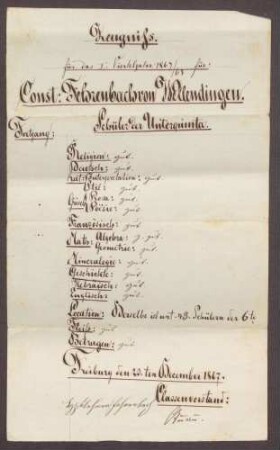 Zeugniß.
für das I. Tertial 1867/68 für
Const: Fehrenbach von Wellendingen.
Schüler der Unterquinta.
Fortgang:
Religion: gut.
Deutsch: gut.
Lat: Interpretation: gut.
Stil: gut.
Griech: Prosa: gut.
Poësie: gut.
Französisch: gut.
Math: Algebra: z. gut.
Geometrie: gut.
Mineralogie: gut.
Geschichte: gut.
Hebräisch: gut.
Englisch: gut.
Location: Derselbe ist unt. 42 Schülern der 6te
Fleiß: gut
Betragen: gut.
Freiburg den 23.ten December 1867.
Classenvorstand:
Fehrenbach